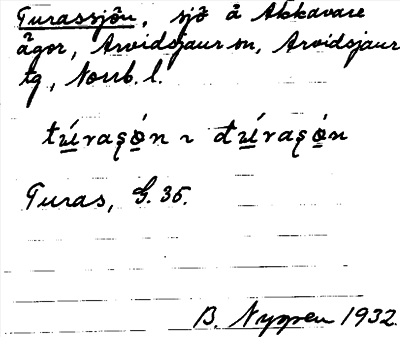 Turassjön, sjö å Akkavare
ägor, Arvidsjaur sn, Arvidsjaur
tg, Norrb. l.
Turas, G. 35.
B. Nyppen 1932.